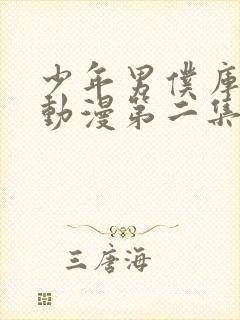 少年男僕庫
動漫第二集
三唐海